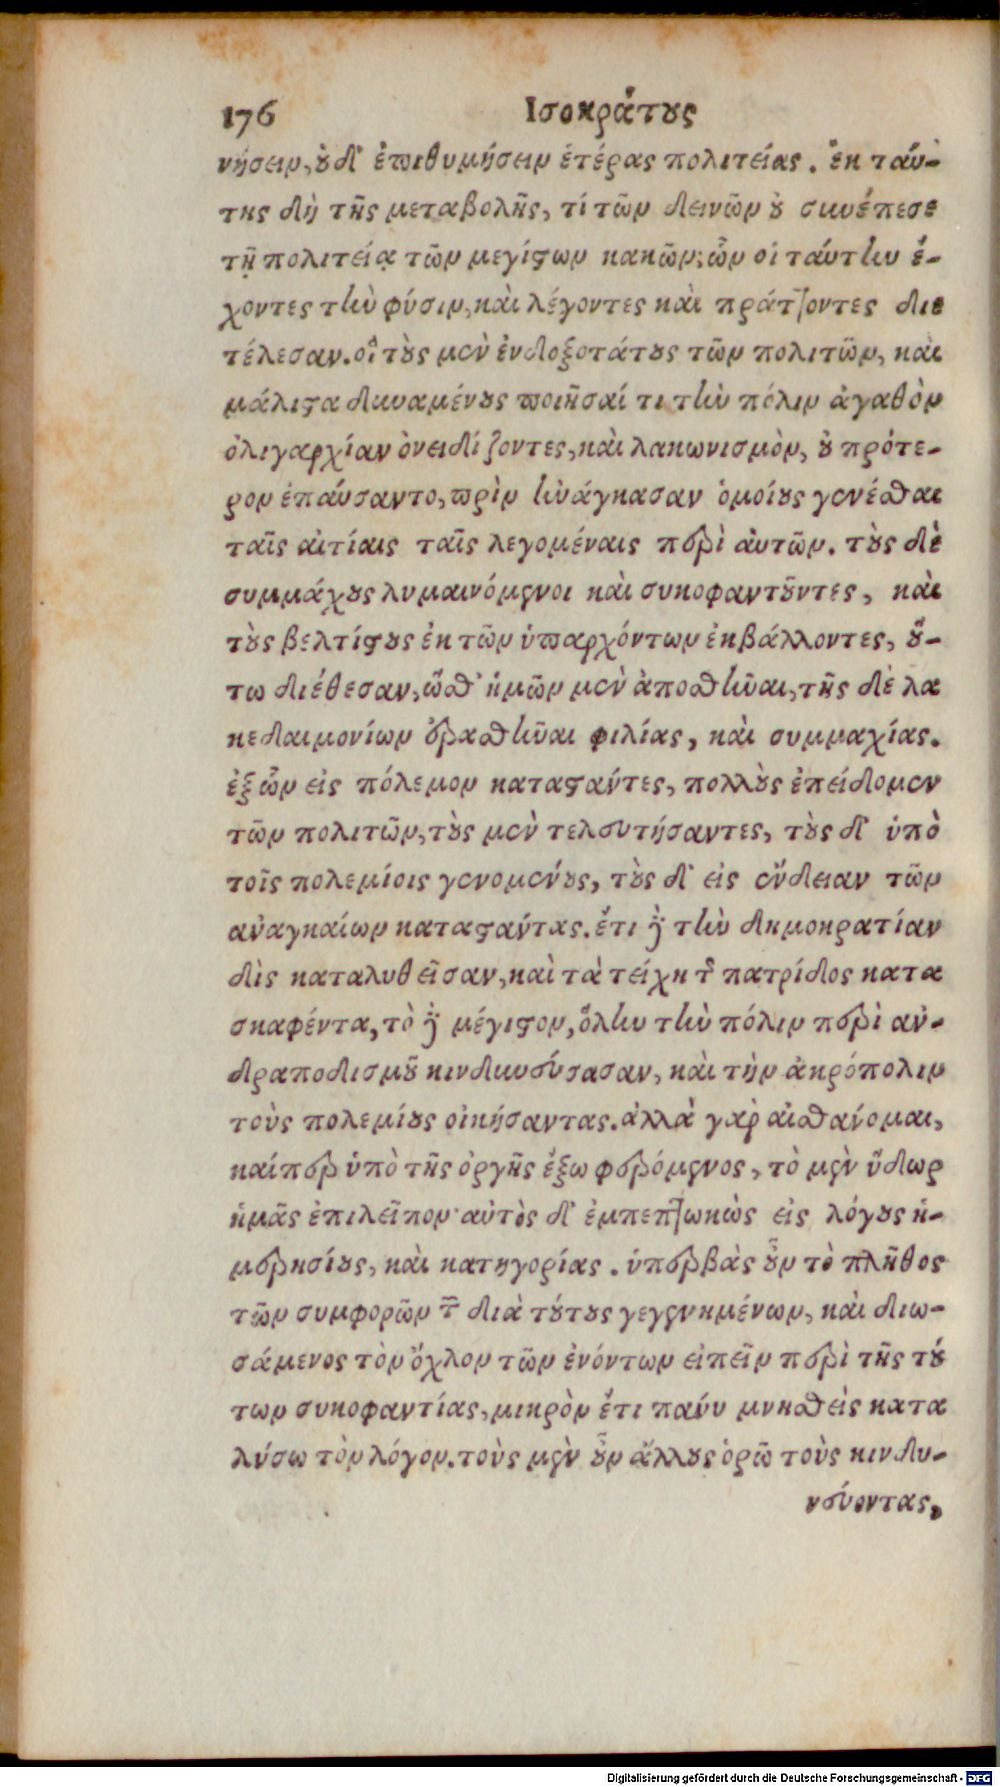 176 Ισοκράτους
νήσειν, οὐδ' ἐπιθυμήσειν ἑτέρας πολιτείας. ἐκ ταύ-
της δὴ τῆς μεταβολῆς, τί τῶν δεινῶν οὐ συνέπεσε
τῇ πολιτείᾳ τῶν μεγίστων κακῶν; ὧν οἱ ταύτην ἔ-
χοντες τὴν φύσιν, καὶ λέγοντες καὶ πράττοντες διε
τέλεσαν. οἳ τοὺς μὲν ἐνδοξοτάτους τῶν πολιτῶν, καὶ
μάλιστα δυναμένους ποιῆσαί τι τὴν πόλιν ἀγαθὸν
ὀλιγαρχίαν ὀνειδίζοντες, καὶ λακωνισμὸν, οὐ πρότε-
ρον ἐπαύσαντο, πρὶν ἠνάγκασαν ὁμοίους γενέσθαι
ταῖς αἰτίαις ταῖς λεγομέναις περὶ αὐτῶν. τοὺς δὲ
συμμάχους λυμαινόμενοι καὶ συκοφαντοῦντες, καὶ
τοὺς βελτίστους ἐκ τῶν ὑπαρχόντων ἐκβάλλοντες, οὕ-
τω διέθεσαν, ὥσθ' ἡμῶν μὲν ἀποστῆναι, τῆς δὲ λα
κεδαιμονίων ἐρασθῆναι φιλίας, καὶ συμμαχίας.
ἐξ ὧν εἰς πόλεμον καταστάντες, πολλοὺς ἐπείδομεν
τῶν πολιτῶν, τοὺς μὲν τελευτήσαντες, τοὺς δ' ὑπὸ
τοῖς πολεμίοις γενομένους, τοὺς δ' εἰς ἔνδειαν τῶν
ἀναγκαίων καταστάντας. ἔτι δὲ τὴν δημοκρατίαν
δὶς καταλυθεῖσαν, καὶ τὰ τείχη τῆς πατρίδος κατα
σκαφέντα, τὸ δὲ μέγιστον, ὅλην τὴν πόλιν περὶ ἀν-
δραποδισμοῦ κινδυνεύσασαν, καὶ τὴν ἀκρόπολιν
τοὺς πολεμίους οἰκήσαντας. ἀλλὰ γὰρ αἰσθάνομαι,
καίπερ ὑπὸ τῆς ὀργῆς ἔξω φερόμενος, τὸ μὲν ὕδωρ
ἡμᾶς ἐπιλεῖπον· αὐτὸς δ' ἐμπεπτωκὼς εἰς λόγους ἡ-
μερησίους, καὶ κατηγορίας. ὑπερβὰς οὖν τὸ πλῆθος
τῶν συμφορῶν τῶν διὰ τούτους γεγενημένων, καὶ διω-
σάμενος τὸν ὄχλον τῶν ἐνόντων εἰπεῖν περὶ τῆς τού
των συκοφαντίας, μικρὸν ἔτι πάνυ μνησθεὶς κατα
λύσω τὸν λόγον. τοὺς μὲν οὖν ἄλλους ὁρῶ τοὺς κινδυ-
νεύοντας,
Digitalisierung gefördert durch die Deutsche Forschungsgemeinschaft - DFG